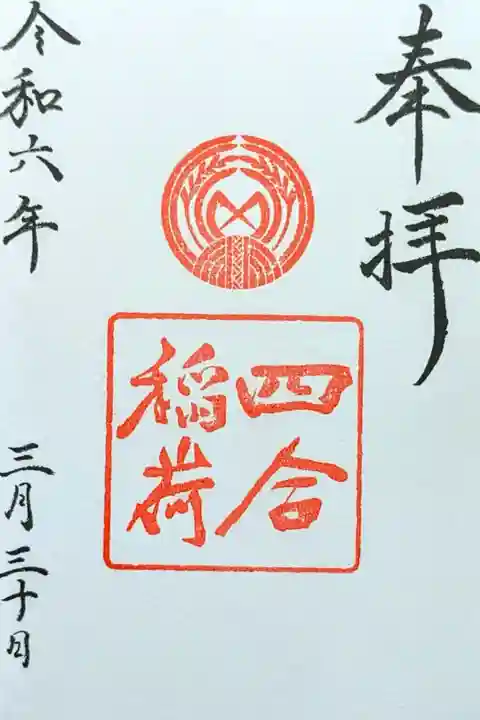 奉拝
四合
稲荷
令和六年
三月三十日